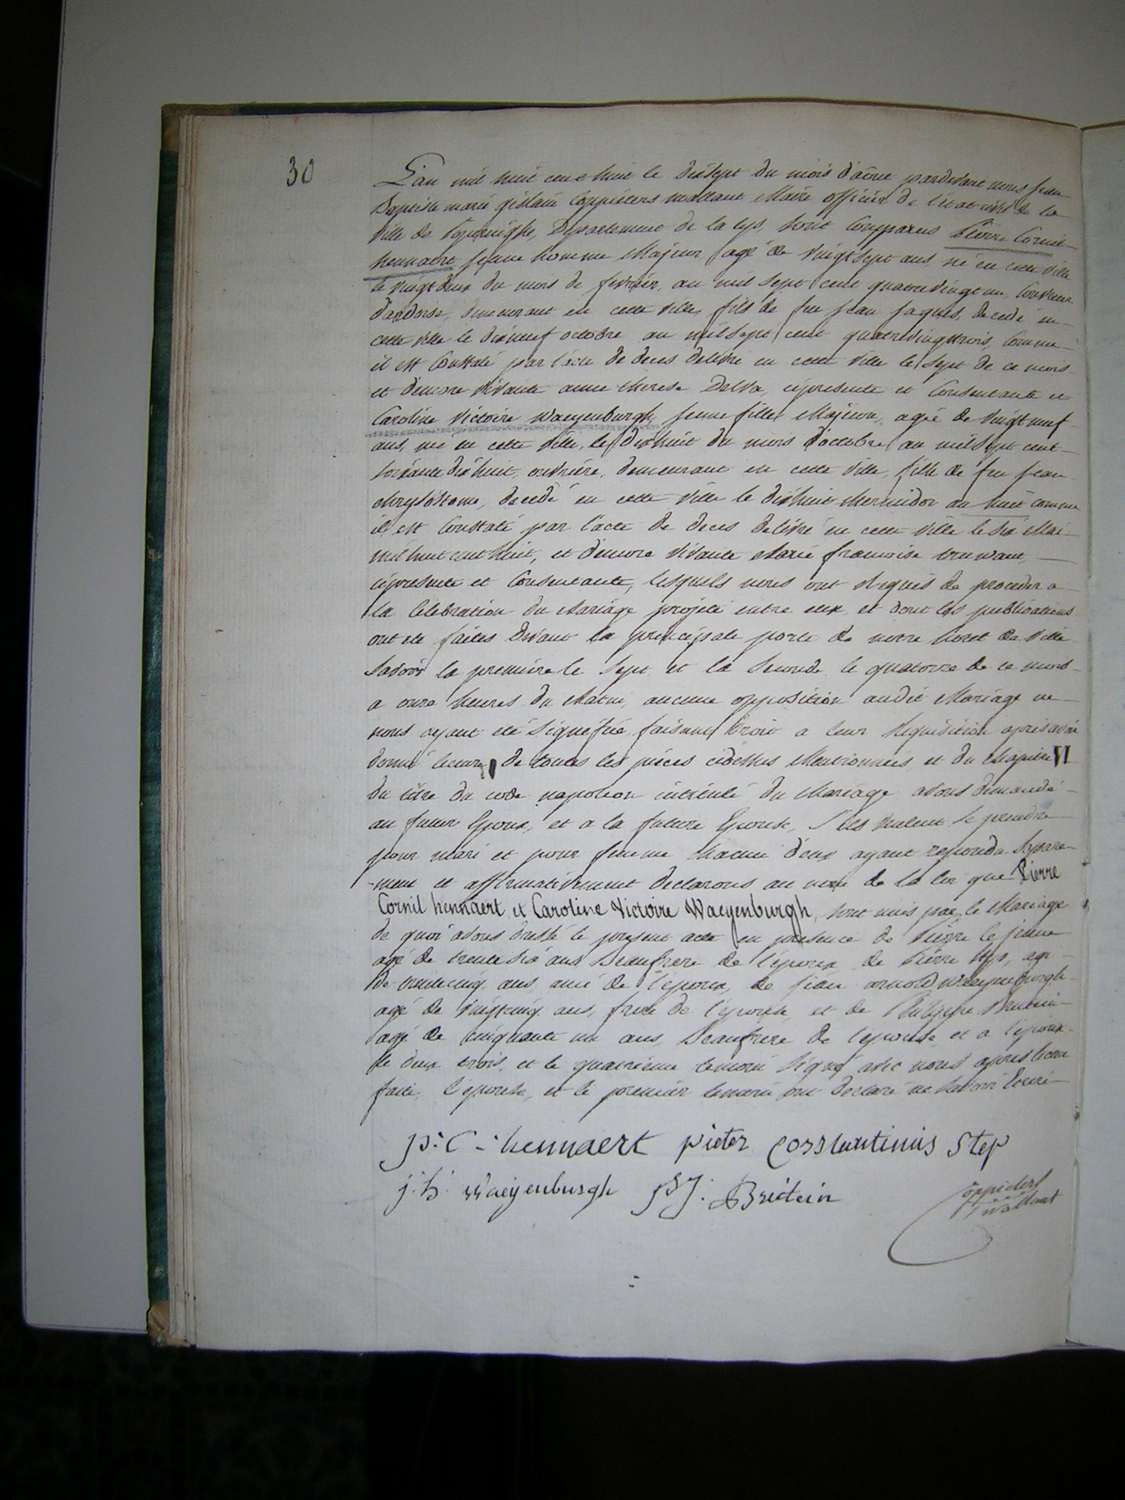 30
L'an mil huit cent huit le dixsept du mois d'aout pardevant nous jean
Baptiste marie gislain Coppieters maire officier de l'état civil de la
Ville de Departement de la Lys, sont comparus Pierre Cornil
hennaert jeune homme Majeur agé de vingt sept ans né en cette ville
le vingt deux du mois de fevrier, an mil sept cent quatre vingt un
demeurant en cette ville, fils de feu jean jaques, decedé en
cette ville le dixneuf octobre an mil sept cent quatre vingt trois, comme
il est constaté par l'acte de deces delivré en cette ville le sept de ce mois
et d'encore vivante anne therese Delva, cipresente et consentante et
Caroline Victoire Waeyenburgh jeune fille Majeure, agée de vingt neuf
ans, née en cette ville, le dixhuit du mois d'octobre an mil sept cent
soixante dixhuit, ouvrière, demeurant en cette ville, fille de feu jean
chrysostome, decedé en cette ville le dixhuit thermidor an huit comme
il est constaté par l'acte de deces delivré en cette ville le six Mai
mil huit cent huit, et d'encore vivante Marie francoise
cipresente et consentante, lesquels nous ont requis de proceder a
la celebration du Mariage projeté entre eux et dont les publications
ont été faites devant la principale porte de notre hotel de ville
savoir la première le sept et la seconde le quatorze de ce mois
a onze heures du matin, aucune opposition audit Mariage ne
nous ayant été signifiée faisant droit a leur requisition après avoir
donné lecture de toutes les pièces cidessus Mentionnées et du chapitre VI
du titre du code napoleon intitulé du Mariage avons demandé
au futur Epoux, et a la future Epouse, s'ils veulent se prendre
pour mari et pour femme chacun d'eux ayant repondu separe-
ment et affirmativement declarons au nom de la loi que Pierre
Cornil hennaert et Caroline Victoire Waeyenburgh, sont unis par le Mariage
de quoi avons dressé le present acte en presence de Pierre le jeune
agé de trente six ans Beaufrere de l'epoux de Pierre agé
de trente cinq ans, ami de l'epoux, de jean arnold waeyenburgh
agé de vingt cinq ans, frere de l'epouse et de Philippe
agé de cinquante un ans Beaufrere de l'epouse et a l'epoux
le deux trois, et le quatrieme temoin signé avec nous après lecture
faite, l'epouse, et le premier temoin ont declaré ne savoir Ecrire
p: C: hennaert pieter Constantinus Step
j: h: Waeyenburgh
Coppieters